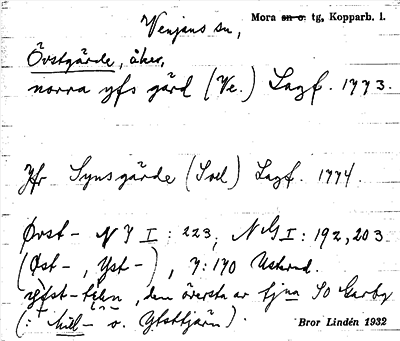 Venjans sn, Mora sn o. tg, Kopparb. l.
Övstgärde, åker,
norra yfs gärd (Ve.) Lagf. 1773.
Jfr Synsgärde (Sol) Lagf. 1774.
Övst- NJ I: 223, NGI: 192, 203
(Øst-, Yst-), 7:170
-tjärn, den översta av tjna SO Garby
(: Mill- o. Ytsttjärn).
Bror Lindén 1932